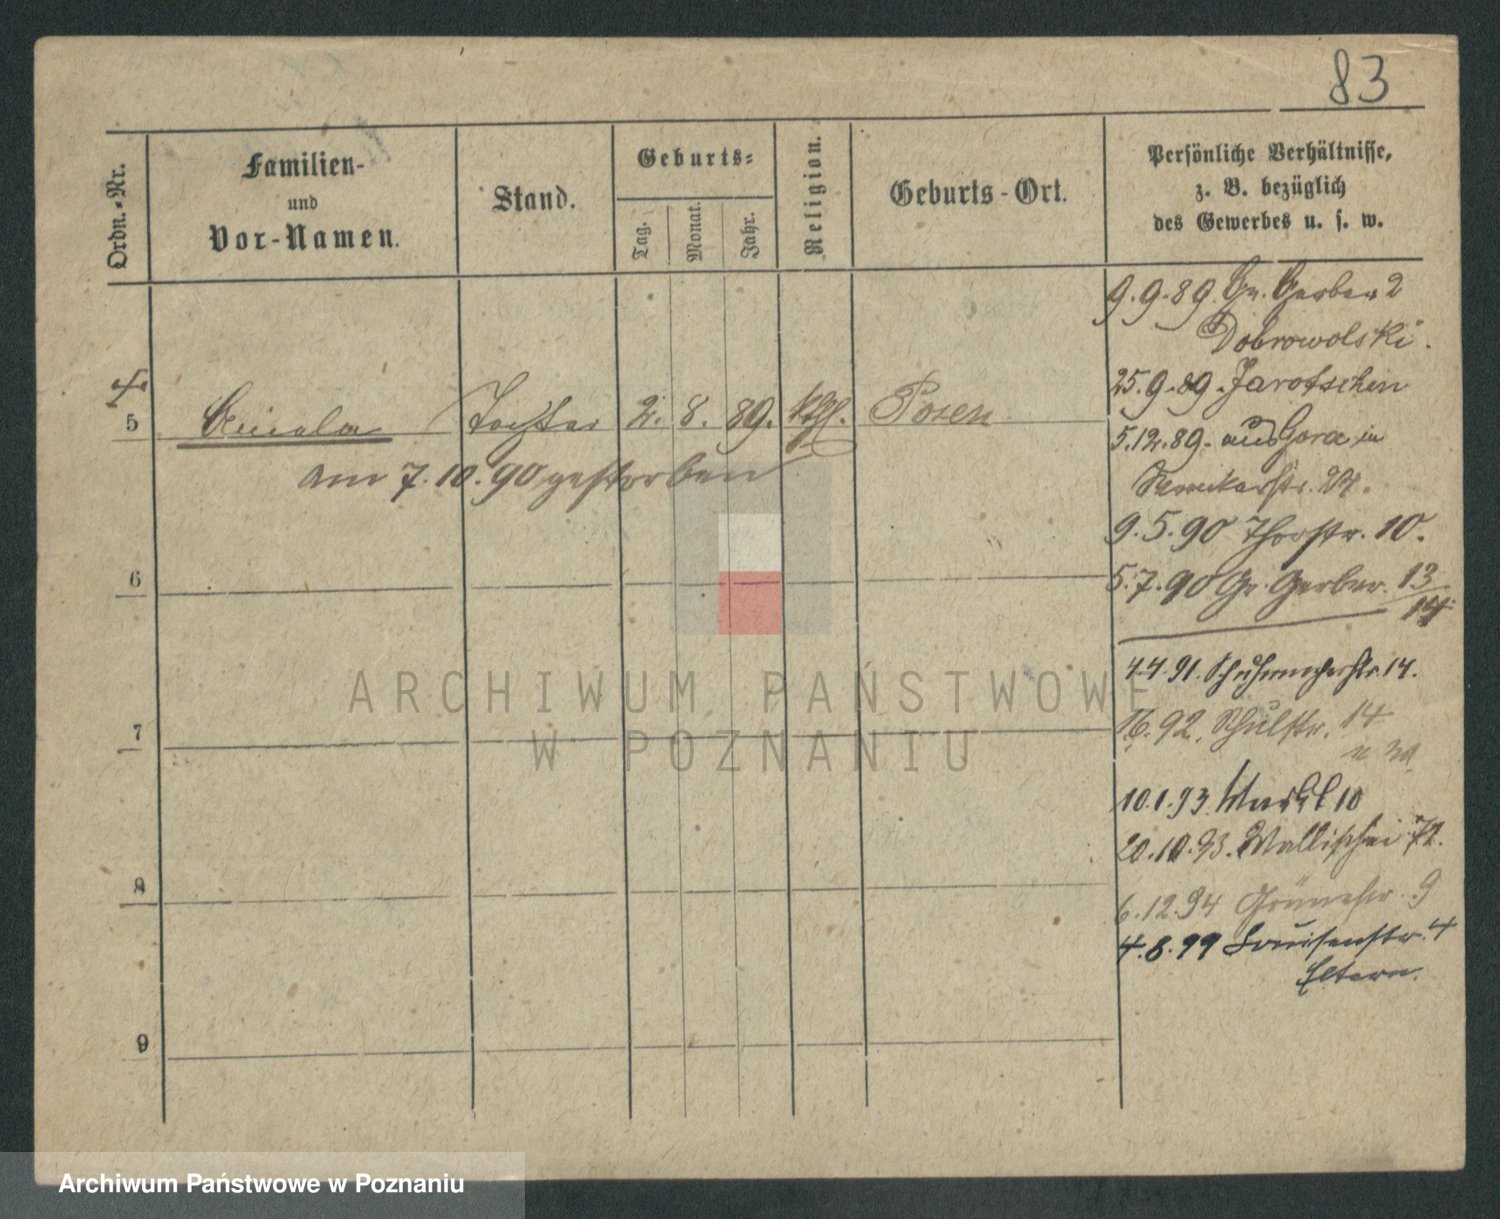 83
Ordn.-Nr.
Familien-
und
Vor-Namen.
Stand.
Geburts-
Tag.
Monat.
Jahr.
Religion.
Geburts-Ort.
Persönliche Verhältnisse,
z. B. bezüglich
des Gewerbes u. s. w.
9.9.89. Gr. Gerber 2
Dobrowolski.
25.9.89. Jarotschin
5.12.89. aus Gora in
9.5.90 Thorstr. 10.
5.7.90 Gr. Gerber. 13/14
4.4.91. Schuhmacherstr. 14.
92. Schulstr. 14
10.1.93. Markt 10
20.10.93. Wallischei 72.
6.12.94 Grünestr. 9
4.8.99 Louisenstr. 4
Eltern.
5 Aniela Tochter 2. 8. 89. kth. Posen
am 7.10.90 gestorben
6
7
8
9
ARCHIWUM PAŃSTWOWE
W POZNANIU
Archiwum Państwowe w Poznaniu